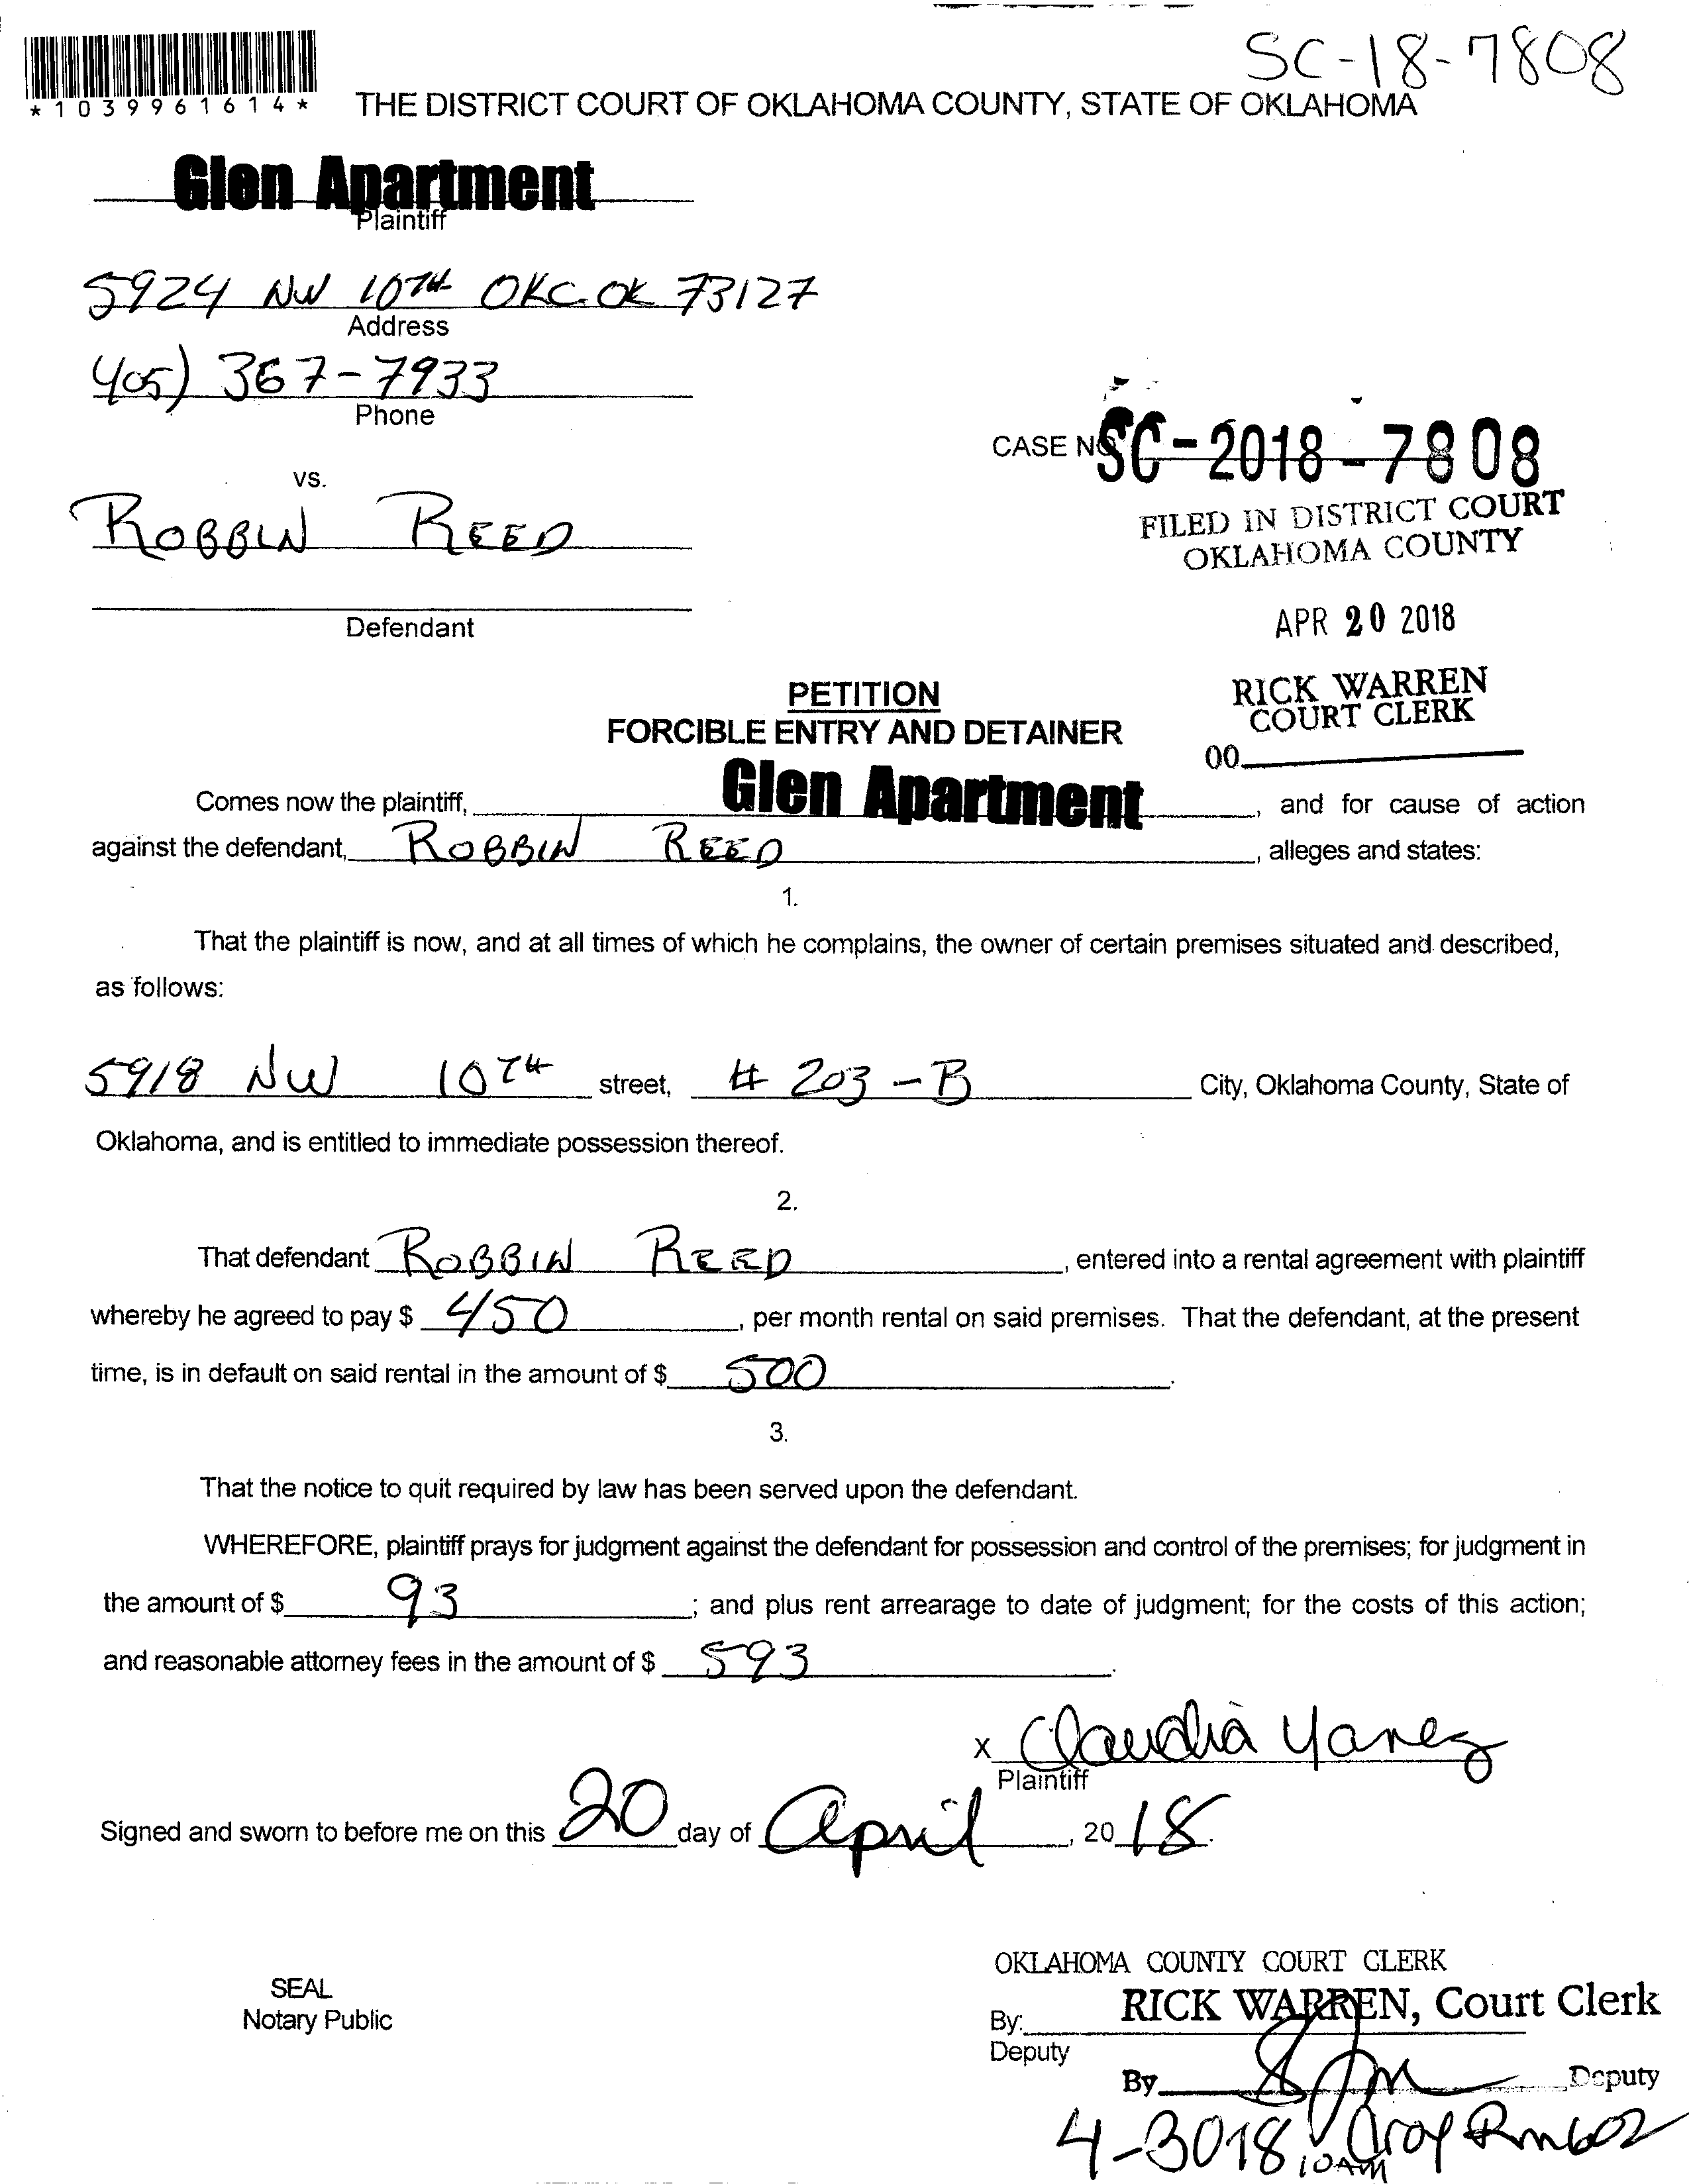 SC-18-7808
*1039961614*
THE DISTRICT COURT OF OKLAHOMA COUNTY, STATE OF OKLAHOMA
Glen Apartment
Plaintiff
5924 NW 10TH OKC. OK 73127
Address
405) 367-7933
Phone
CASE NO. SC-2018-7808
vs.
FILED IN DISTRICT COURT
OKLAHOMA COUNTY
ROBBIN REED
APR 20 2018
Defendant
RICK WARREN
COURT CLERK
00
PETITION
FORCIBLE ENTRY AND DETAINER
Comes now the plaintiff, Glen Apartment, and for cause of action
against the defendant, ROBBIN REED, alleges and states:
1.
That the plaintiff is now, and at all times of which he complains, the owner of certain premises situated and described,
as follows:
5918 NW 10TH street, # 203-B City, Oklahoma County, State of
Oklahoma, and is entitled to immediate possession thereof.
2.
That defendant ROBBIN REED, entered into a rental agreement with plaintiff
whereby he agreed to pay $ 450, per month rental on said premises. That the defendant, at the present
time, is in default on said rental in the amount of $ 500.
3.
That the notice to quit required by law has been served upon the defendant.
WHEREFORE, plaintiff prays for judgment against the defendant for possession and control of the premises; for judgment in
the amount of $ 93; and plus rent arrearage to date of judgment; for the costs of this action;
and reasonable attorney fees in the amount of $ 593.
x Claudia Yanez
Plaintiff
Signed and sworn to before me on this 20 day of April, 2018.
OKLAHOMA COUNTY COURT CLERK
SEAL
Notary Public
By: RICK WARREN, Court Clerk
Deputy
By Deputy
4-3018 10AM Rm 602